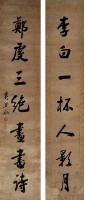 李白一杯人影月
鄭虔三絕畫書詩